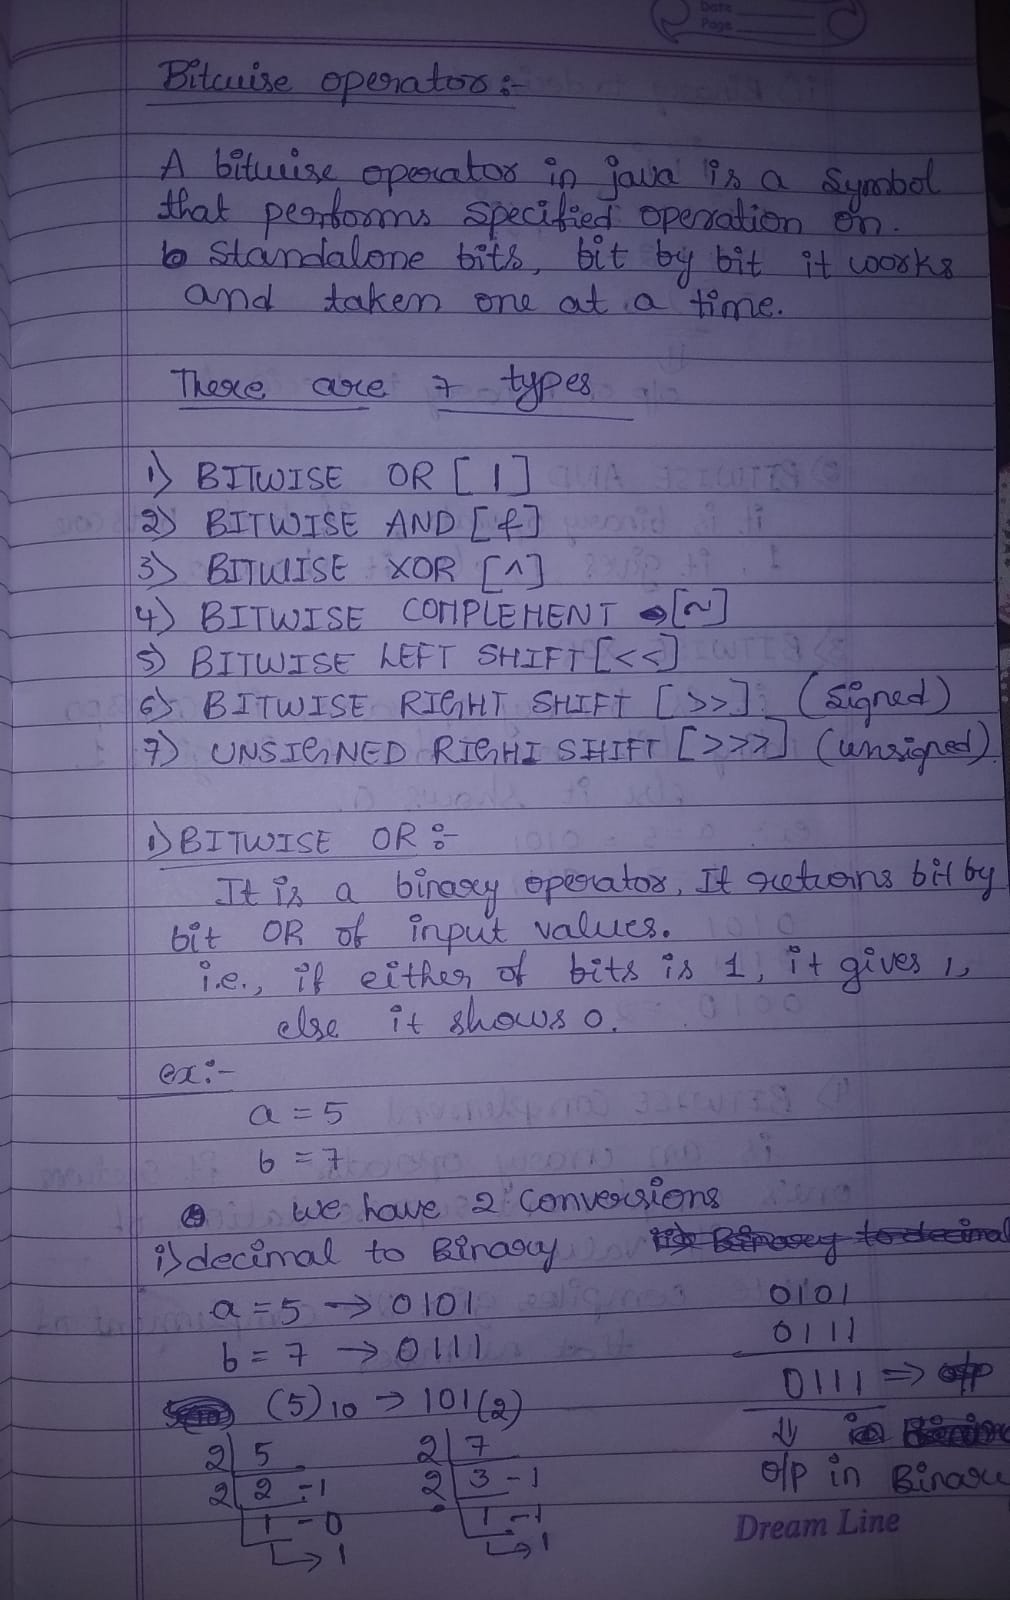 Date
Page
Bitwise operator :-
A bitwise operator in java is a symbol
that performs specified operation on.
standalone bits, bit by bit it works
and taken one at a time.
There are 7 types
1) BITWISE OR [ | ]
2) BITWISE AND [&]
3) BITWISE XOR [^]
4) BITWISE COMPLEMENT [~]
5) BITWISE LEFT SHIFT [<<]
6) BITWISE RIGHT SHIFT [>>] (Signed)
7) UNSIGNED RIGHT SHIFT [>>>] (unsigned)
1) BITWISE OR :-
It is a binary operator, It returns bit by
bit OR of input values.
i.e., if either of bits is 1, it gives 1,
else it shows 0.
ex:-
a = 5
b = 7
we have 2 conversions
i) decimal to Binary ii) Binary to decimal
a = 5 → 0101 0101
b = 7 → 0111 0111
0111 ⇒ o/p
(5)10 → 101(2)
2 5 2 7 ⇓
2 2 - 1 2 3 - 1 o/p in Binary
1 - 0 1 - 1
↳ 1 ↳ 1
Dream Line